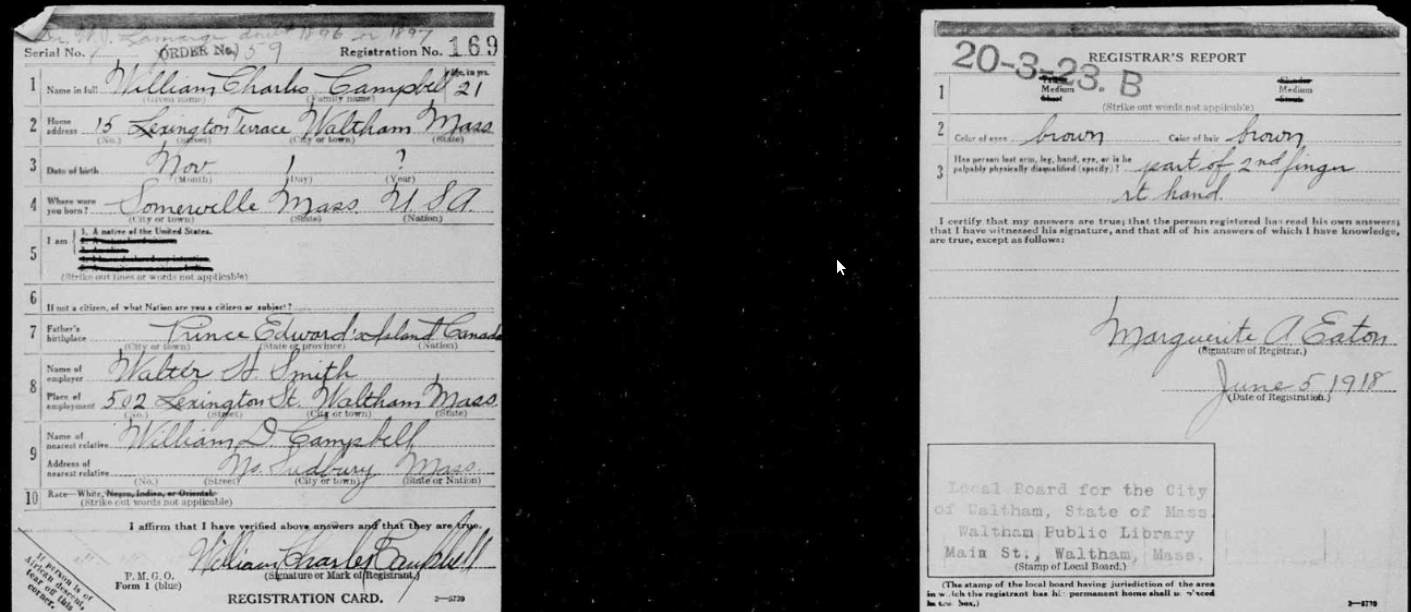 Dr. W. J. Lamarge doubt 1896 or 1897
Serial No. 1 ORDER No. 59 Registration No. 169
1 Name in full William Charles Campbell Age, in yrs. 21
(Given name) (Family name)
2 Home address 15 Lexington Terrace Waltham Mass
(No.) (Street) (City or town) (State)
3 Date of birth Nov 1 ?
(Month) (Day) (Year)
4 Where were you born? Somerville Mass. U.S.A.
(City or town) (State) (Nation)
5 I am 1. A native of the United States.
(Strike out lines or words not applicable)
6 If not a citizen, of what Nation are you a citizen or subject?
7 Father's birthplace Prince Edward's Island Canada
(City or town) (State or province) (Nation)
8 Name of employer Walter H. Smith
Place of employment 502 Lexington St. Waltham, Mass.
(No.) (Street) (City or town) (State)
9 Name of nearest relative William D. Campbell
Address of nearest relative No. Sudbury Mass.
(No.) (Street) (City or town) (State or Nation)
10 Race—White, Negro, Indian, or Oriental.
(Strike out words not applicable)
I affirm that I have verified above answers and that they are true.
William Charles Campbell
(Signature or Mark of Registrant.)
P. M. G. O.
Form 1 (blue)
REGISTRATION CARD. 3—5739
If person is of
African descent,
tear off this
corner.
REGISTRAR'S REPORT
20-3-23. B
1 Tall Medium Short Slender Medium Stout
(Strike out words not applicable)
2 Color of eyes brown Color of hair brown
3 Has person lost arm, leg, hand, eye, or is he
palpably physically disqualified (specify)? part of 2nd finger
rt hand.
I certify that my answers are true; that the person registered has read his own answers;
that I have witnessed his signature, and that all of his answers of which I have knowledge,
are true, except as follows:
Marguerite A. Eaton
(Signature of Registrar.)
June 5 1918
(Date of Registration.)
Local Board for the City
of Waltham, State of Mass.
Waltham Public Library
Main St., Waltham, Mass.
(Stamp of Local Board.)
(The stamp of the local board having jurisdiction of the area
in which the registrant has his permanent home shall be placed
in this box.) 3—5739